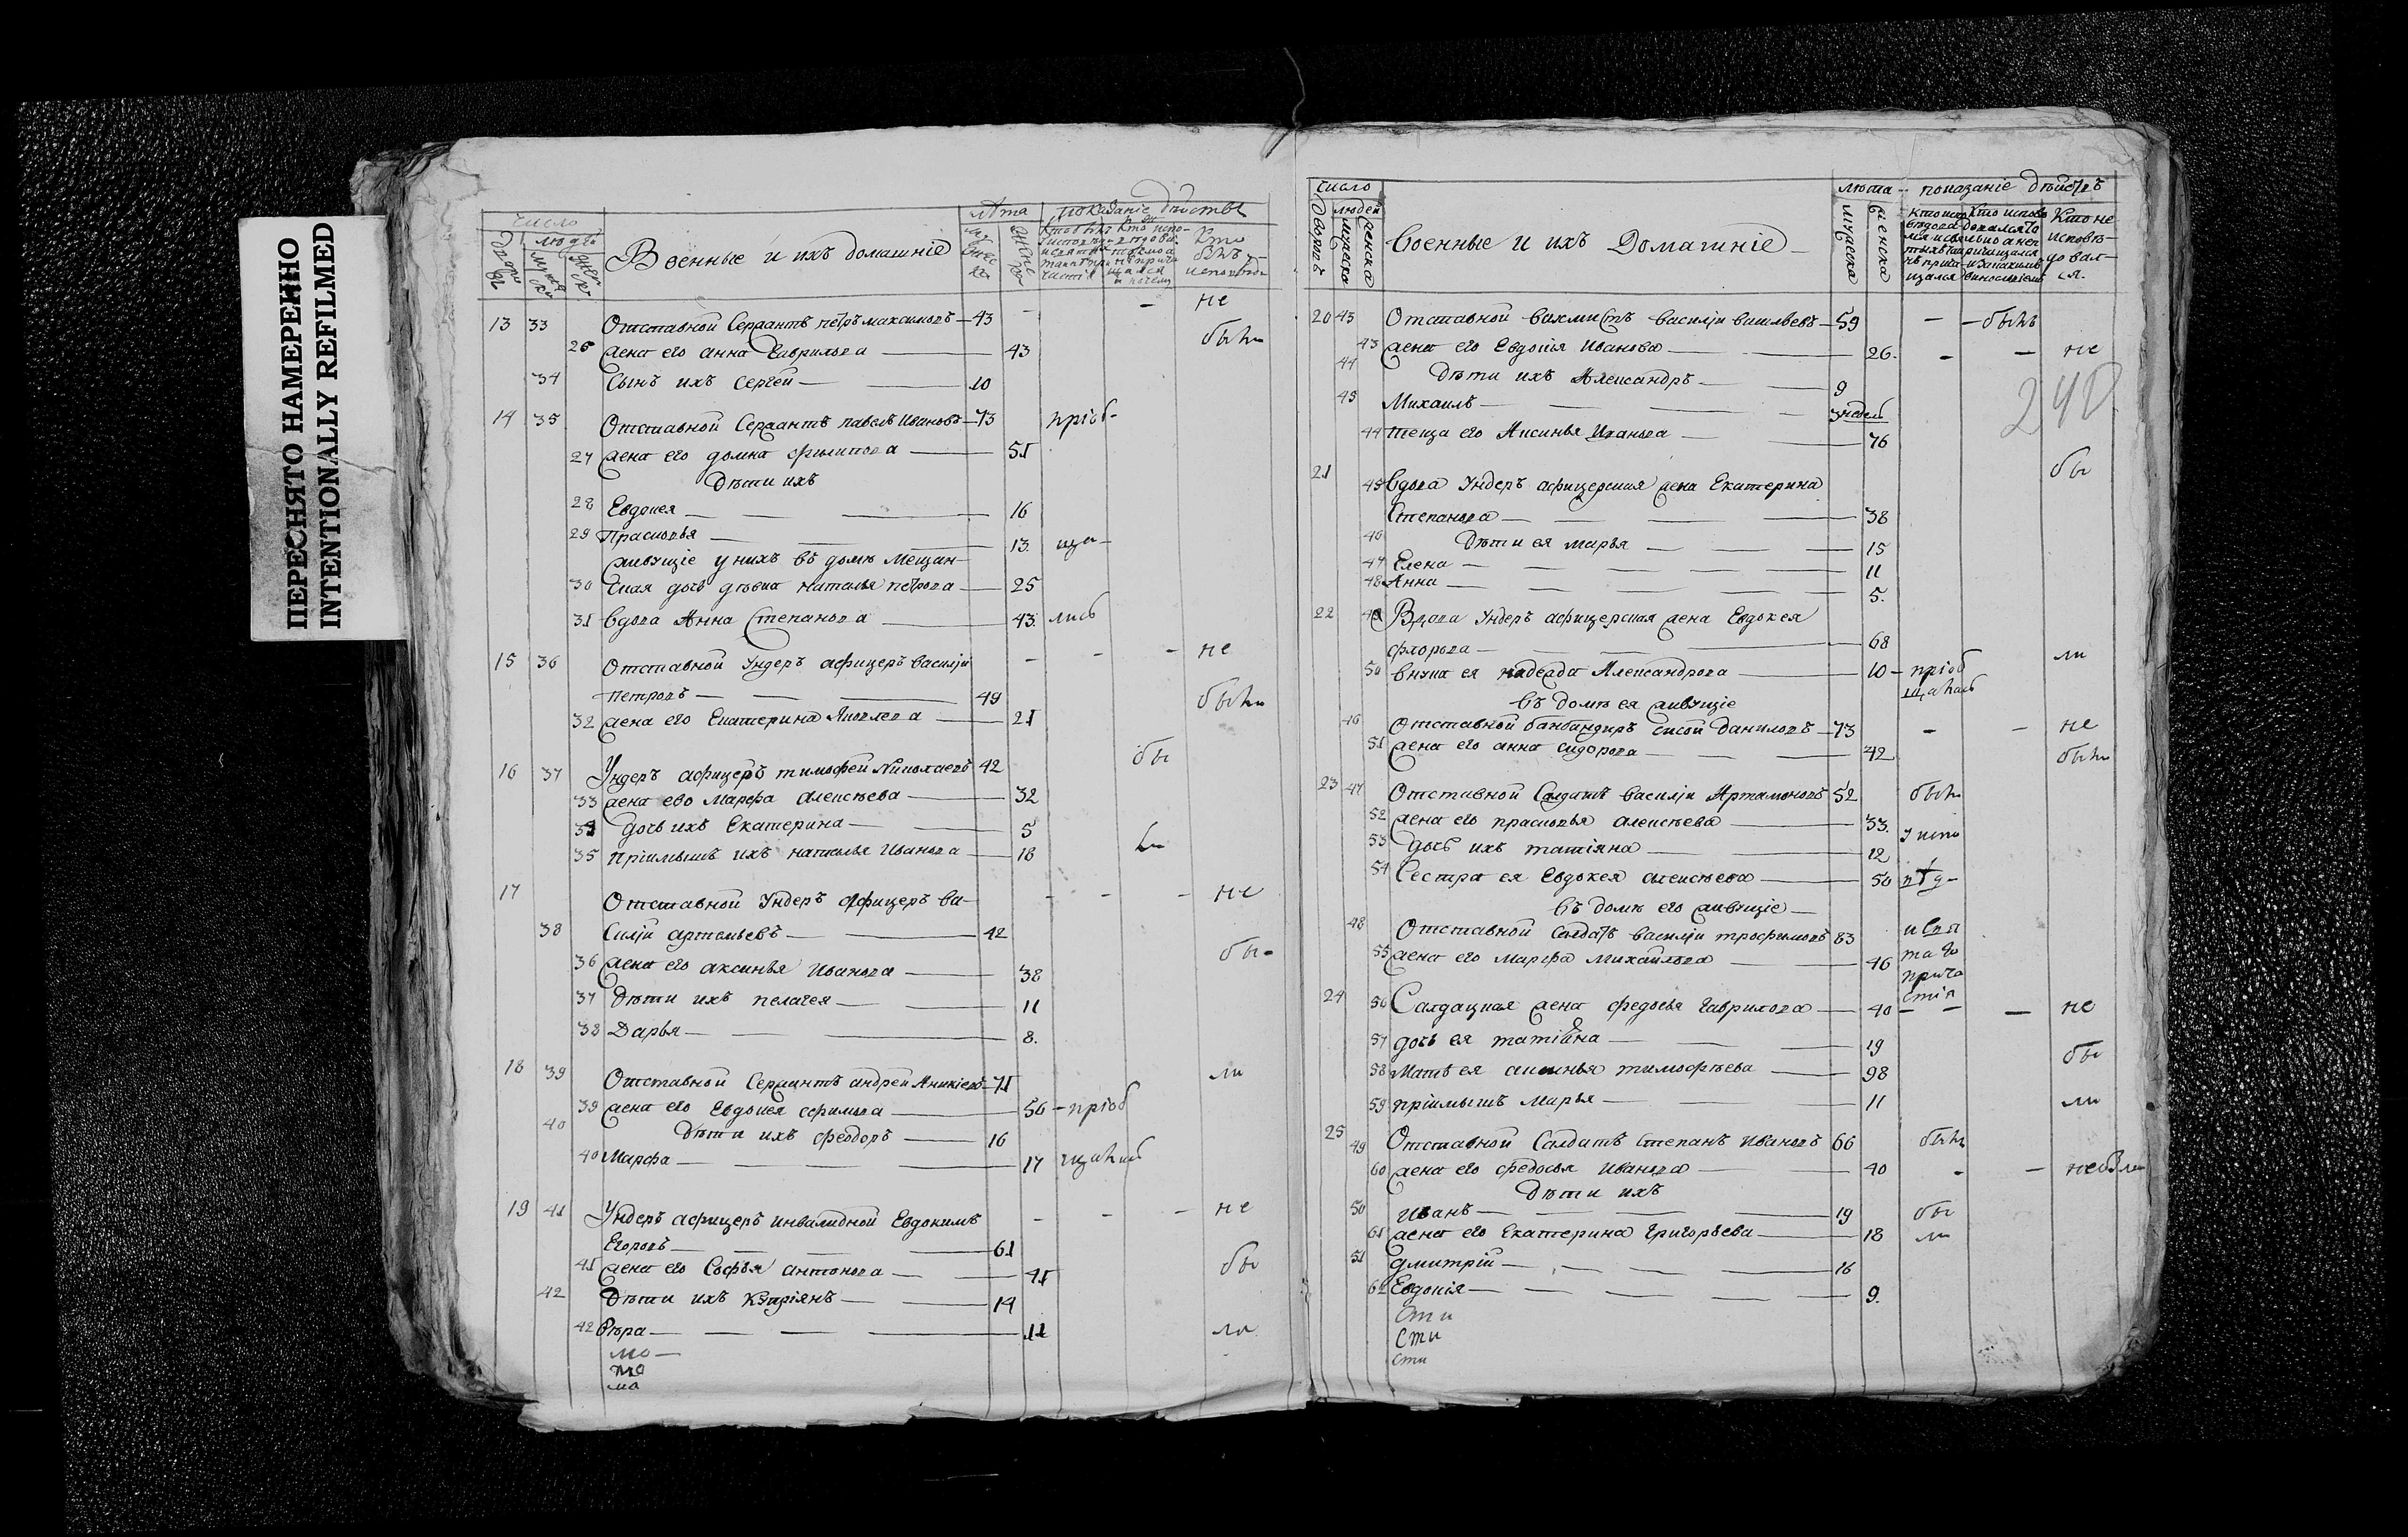 ПЕРЕСНЯТО НАМЕРЕННО
INTENTIONALLY REFILMED
число
людей
Военные и ихъ домашніе
лѣта
показаніе дѣйствъ
не
13 33 Отставной Сержантъ петръ максимовъ 43
были
26 жена его анна Гаврилова 43
34 Сынъ ихъ сергей 10
14 35 Отставной Сержантъ павелъ Ивановъ 73 пріоб-
27 жена его домна филипова 51
Дѣти ихъ
28 Евдокея 16
29 Прасковья 13 ща-
живущіе у нихъ въ домѣ мещан-
30 ская дочь девка наталья петрова 25
31 вдова Анна Степанова 43 лись
15 36 Отставной Ундеръ афицеръ василіи не
петровъ 49 были
32 жена его Екатерина Яковлева 21
16 37 Ундеръ афицеръ тимофей Николаевъ 42 бы
33 жена ево Марфа алексѣева 32
34 дочь ихъ Екатерина 5
35 пріимышъ ихъ наталья Иванова 18 ли
17 Отставной Ундеръ афицеръ ва- не
38 силіи артемьевъ 42
36 жена его аксинья Иванова 38 бы-
37 Дѣти ихъ пелагея 11
38 Дарья 8.
18 39 Отставной Сержантъ андрей Аникіевъ 71 ли
39 жена его Евдокея ефимова 50 пріоб
40 Дѣти ихъ феодоръ 16
40 Марфа 17 щались
19 41 Ундеръ афицеръ инвалидной Евдокимъ не
Егоровъ 61
41 жена его Софья антонова 41 бы
42 Дѣти ихъ Купріянъ 14
42 Вѣра 11 ли
мо
мо
мо
число
дворовъ
людей
мужеска
женска
Военные и ихъ Домашніе
лѣта
мужеска
женска
показаніе дѣйствъ
Кто не
исповѣ-
довал-
ся.
20 43 Отставной вахмистъ василіи васильевъ 59 были
43 жена его Евдокія Иванова 26. не
44 Дѣти ихъ Александръ 9
240
45 Михаилъ 3 недел
44 теща его Аксинья Иванова 76
21 45 Вдова Ундеръ афицерская жена Екатерина бы
Степанова 38
46 Дѣти ея марья 15
47 Елена 11
48 Анна 5.
22 49 Вдова Ундеръ афицерская жена Евдокея
флорова 68 ли
50 внука ея надежда Александрова 10 пріоб
въ домѣ ея живущіе щалась
46 Отставной банбандиръ сысой данилов 73 не
51 жена его анна сидорова 42 были
23 47 Отставной Салдатъ василіи Артамоновъ 52 были
52 жена его прасковья алексѣева 33. у испо
53 дочь ихъ татіяна 12
54 Сестра ея Евдокея алексѣева 50
въ домѣ его живущіе
48 Отставной солдатъ василіи трофимовъ 83 и свя
55 жена его марфа михайлова 46 таго
прича
24 56 Салдацкая жена федосья гаврилова 40 не
стія
57 дочь ея татіана 19 бы
58 Мать ея аксинья тимофѣева 98
59 пріимышъ марья 11 ли
25 49 Отставной Солдатъ степанъ Ивановъ 66 были
60 жена его федосья Иванова 40
Дѣти ихъ
50 Иванъ 19 бы
61 жена его Екатерина Григорьева 18 ли
51 дмитрій 16
62 Евдокія 9.
сти
сти
сти